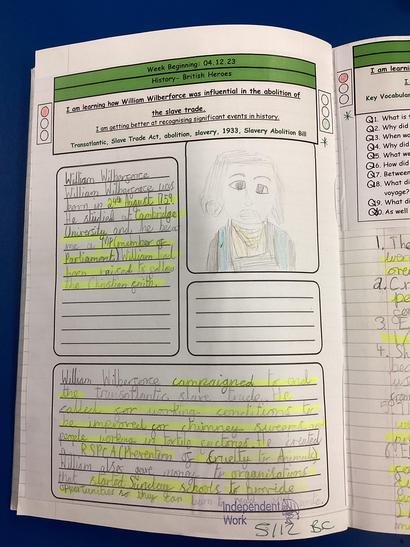 Week Beginning: 04.12.23
History- British Heroes
I am learning how William Wilberforce was influential in the abolition of
the slave trade.
I am getting better at recognising significant events in history.
Transatlantic, Slave Trade Act, abolition, slavery, 1933, Slavery Abolition Bill
William Wilberforce
William Wilberforce was
born in 24th August 1759
He studied at Cambridge
University and he beca
me a MP (member of
Parliament) William had
been raised to follow
the Christian faith.
William Wilberforce campaigned to end
the transatlantic slave trade. He
called for working conditions to
be improved for chimney sweepers
people working in textile factories. He created
RSPCA (Prevention of Cruelty to Animals)
William also gave money to organisations
that started Sunday schools to provide
opportunities so they can learn to
Independent
Work
5/12 BC
I am learni
Key Vocabular
Q1. What is
Q2. Why did
Q3. When wa
Q4. Why did
Q5. What we
Q6. How did
Q7. Between
Q8. What di
voyage?
Q9. What di
Q10. As well
1. The
2. Cr
3. E
4. S